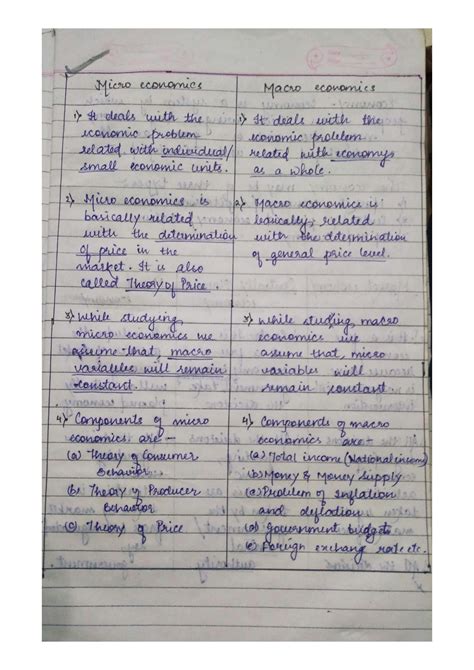 Micro economics
1) It deals with the
economic problem
related with individual/
small economic units.
2) Micro economics is
basically related
with the determination
of price in the
market. It is also
called Theory of Price.
3) While studying
micro economics we
assume that, macro
variables will remain
constant.
4) Components of micro
economics are -
(a) Theory of Consumer
Behavior.
(b) Theory of Producer
Behavior
(c) Theory of Price
Macro economics
1) It deals with the
economic problem
related with economy
as a whole.
2) Macro economics is
basically related
with the determination
of general price level.
3) While studing macro
economics we
assume that, micro
variables will
remain constant.
4) Components of macro
economics are -
(a) Total income (National income)
(b) Money & Money Supply
(c) Problem of inflation
and deflation
(d) government budgets
(e) Foreign exchang rate etc.